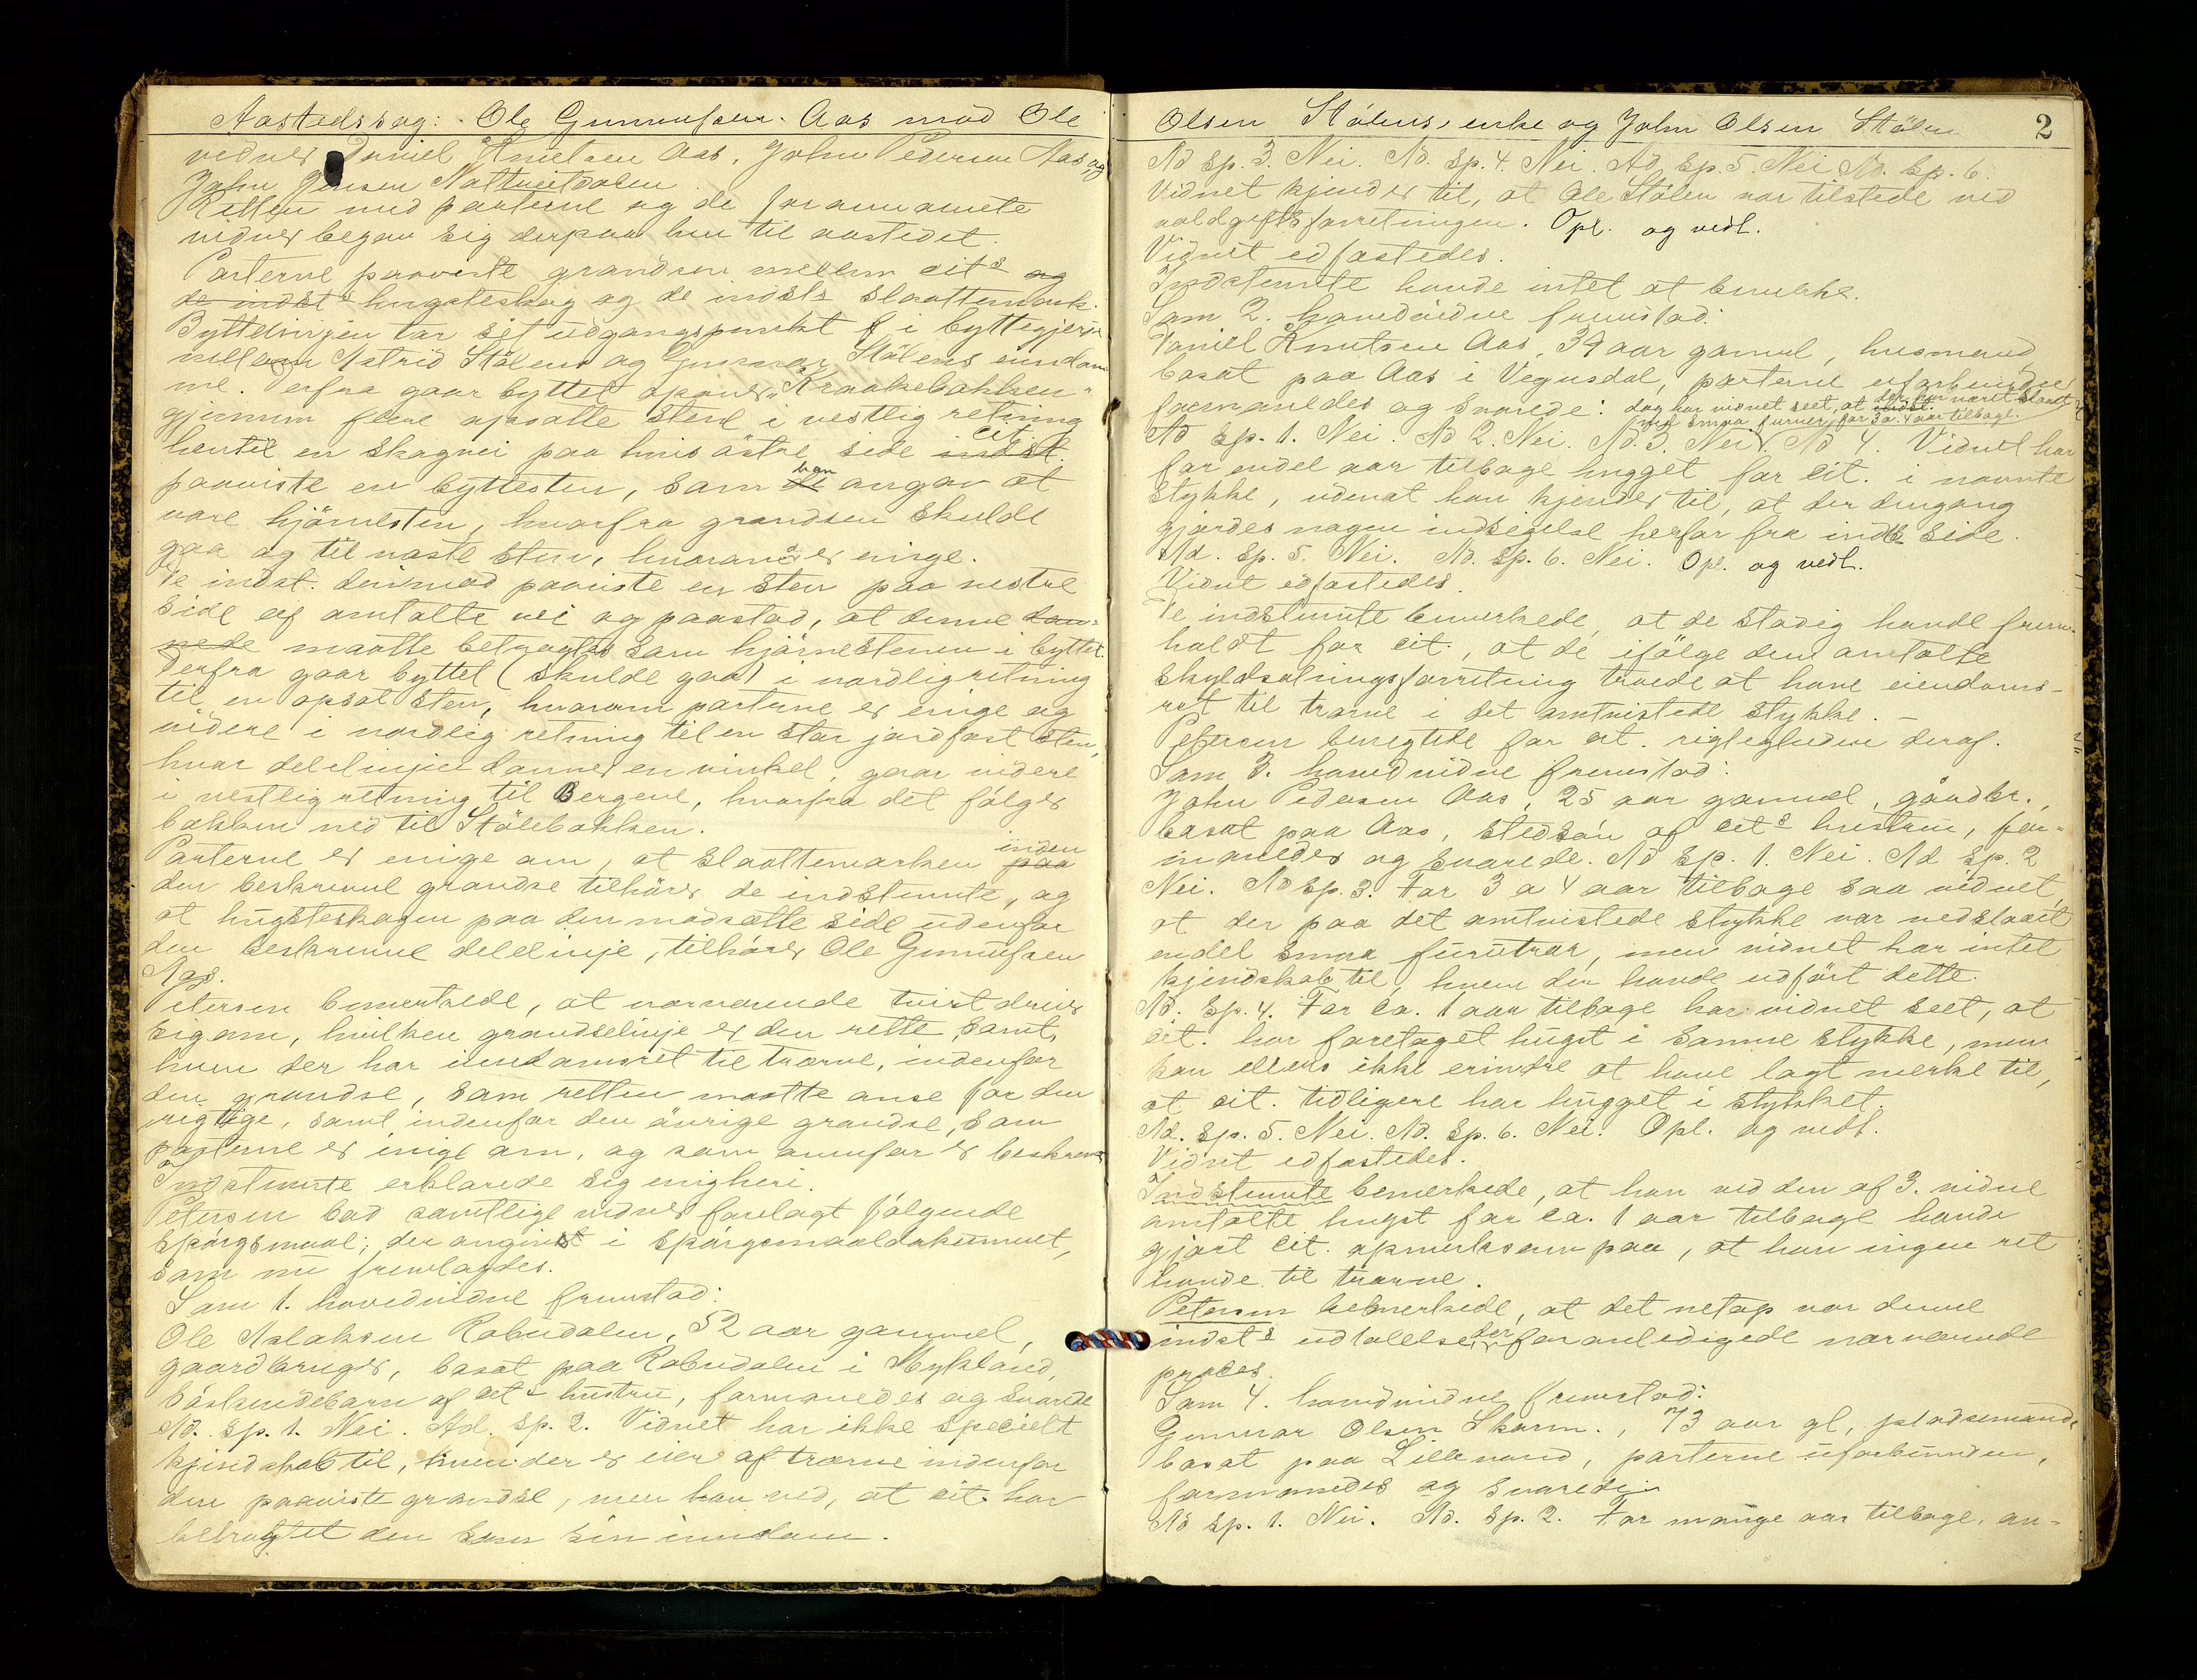 Aastedssag: Ole Gunnufsen Aas mod Ole
vidner Daniel Knutsen Aas, John Pedersen Aas og
John Jensen Nattveitdalen.
Retten med parterne og de forannævnte
vidner begav sig derpaa hen til aastedet.
Parterne paaviste grændsen mellem cits og
de indsts hugsteskog og de indsts slaattemark.
Byttelinjen tar sit udgangspunkt i byttegjerde
mellem Astrid Stölens og Gunnar Stölens eiendom
me. Derfra gaar byttet opover "Kraakebakken"
gjennem flere opsatte stene i vestlig retning
hentil en skogvei paa hvis östre side indst. cit.
paaviste en byttesten, som de han angav at
være hjörnesten, hvorfra grændsen skulde
gaa og til næste sten, hvorom de er enige.
De indst. derimod paaviste en sten paa vestre
side af omtalte vei og paastod, at denne dan-
nede maatte betragtes som hjörnestenen i byttet.
Derfra gaar byttet (skulde gaa) i nordlig retning
til en opsat sten, hvorom parterne er enige og
videre i nordlig retning til en stor jordfast sten,
hvor delelinjen danner en vinkel, gaar videre
i vestlig retning til Bergene, hvorfra det fölger
bakken ned til Stölebakken.
Parterne er enige om, at slaattemarken paa inden
den beskrevne grændse tilhörer de indstevnte, og
at hugsteskogen paa den modsatte side udenfor
den beskrevne delelinje, tilhörer Ole Gunnufsen
Aas.
Petersen bemerkede, at nærværende tvist dreier
sig om, hvilken grændselinje er den rette, samt,
hvem der har eiendomsret til trærne, indenfor
den grændse, som retten maatte anse for den
rigtige, samt indenfor den övrige grændse, som
parterne er enige om, og som ovenfor er beskrevet
Indstevnte erklærede sig enig heri.
Petersen bad samtlige vidner forelagt fölgende
spörgsmaal; der angivet i spörgsmaaldokumentet,
som nu fremlagdes.
Som 1. hovedvidne fremstod:
Ole Aslaksen Robudalen, 52 aar gammel,
gaardbruger, bosat paa Robudalen i Mykland,
söskendebarn af cits hustru, formanedes og svarede
Ad. Sp. 1. Nei. Ad. Sp. 2. Vidnet har ikke specielt
kjendskab til, hvem der er eier af trærne indenfor
den paaviste grændse, men han ved, at cit. har
betragtet den som sin eiendom.
Olsen Stölens enke og John Olsen Stölen 2
Ad Sp. 3. Nei. Ad. Sp. 4. Nei. Ad. Sp. 5. Nei Ad. Sp. 6.
Vidnet kjender til, at Ole Stölen var tilstede ved
voldgiftsforretningen. Opl. og vedt.
Vidnet edfæstedes.
Indstevnte havde intet at bemerke.
Som 2. hovedvidne fremstod:
Daniel Knutsen Aas, 39 aar gammel, husmand,
bosat paa Aas i Vegusdal, parterne uforbunden
formanedes og svarede: dog har vidnet seet, at indst. der har været slaaet
ned smaa furuer for 3 a 4 aar tilbage.
Ad Sp. 1. Nei. Ad 2. Nei. Ad. 3. Nei. Ad 4. Vidnet har
for endel aar tilbage hugget for cit. i nævnte
stykke, udenat han kjender til, at der dengang
gjordes nogen indsigelse herfor fra indts side.
Ad. Sp. 5. Nei. Ad. Sp. 6. Nei. Opl. og vedt.
Vidnet edfæstedes.
De indstevnte bemerkede, at de stadig havde frem-
holdt for cit., at de ifölge den omtalte
skyldsætningsforretning troede at have eiendoms-
ret til trærne i det omtvistede stykke. –
Petersen benegtede for cit. rigtigheden deraf.
Som 3. hovedvidne fremstod:
John Pedersen Aas, 25 aar gammel, gaardbr.,
bosat paa Aas, stedsön af cits hustru, for-
manedes og svarede. Ad Sp. 1. Nei. Ad Sp. 2
Nei. Ad Sp. 3. For 3 a 4 aar tilbage saa vidnet,
at der paa det omtvistede stykke var nedslaaet
endel smaa furutrær, men vidnet har intet
kjendskab til, hvem der havde udfört dette.
Ad. Sp. 4. For ca. 1 aar tilbage har vidnet seet, at
cit. har foretaget hugst i samme stykke, men
kan ellers ikke erindre at have lagt merke til,
at cit. tidligere har hugget i stykket.
Ad. Sp. 5. Nei. Ad. Sp. 6. Nei. Opl. og vedt.
Vidnet edfæstedes.
Indstevnte bemerkede, at han ved den af 3. vidne
omtalte hugst for ca. 1 aar tilbage havde
gjort cit. opmerksom paa, at han ingen ret
havde til trærne.
Petersen bemerkede, at det netop var denne
indsts udtalelse, der foranledigede nærværende
proces.
Som 4. hovedvidne fremstod:
Gunnar Olsen Skarm., 73 aar gl, pladsemand,
bosat paa Lillevand, parterne uforbunden,
formanedes og svarede:
Ad Sp. 1. Nei. Ad. Sp. 2. For mange aar tilbage, an-